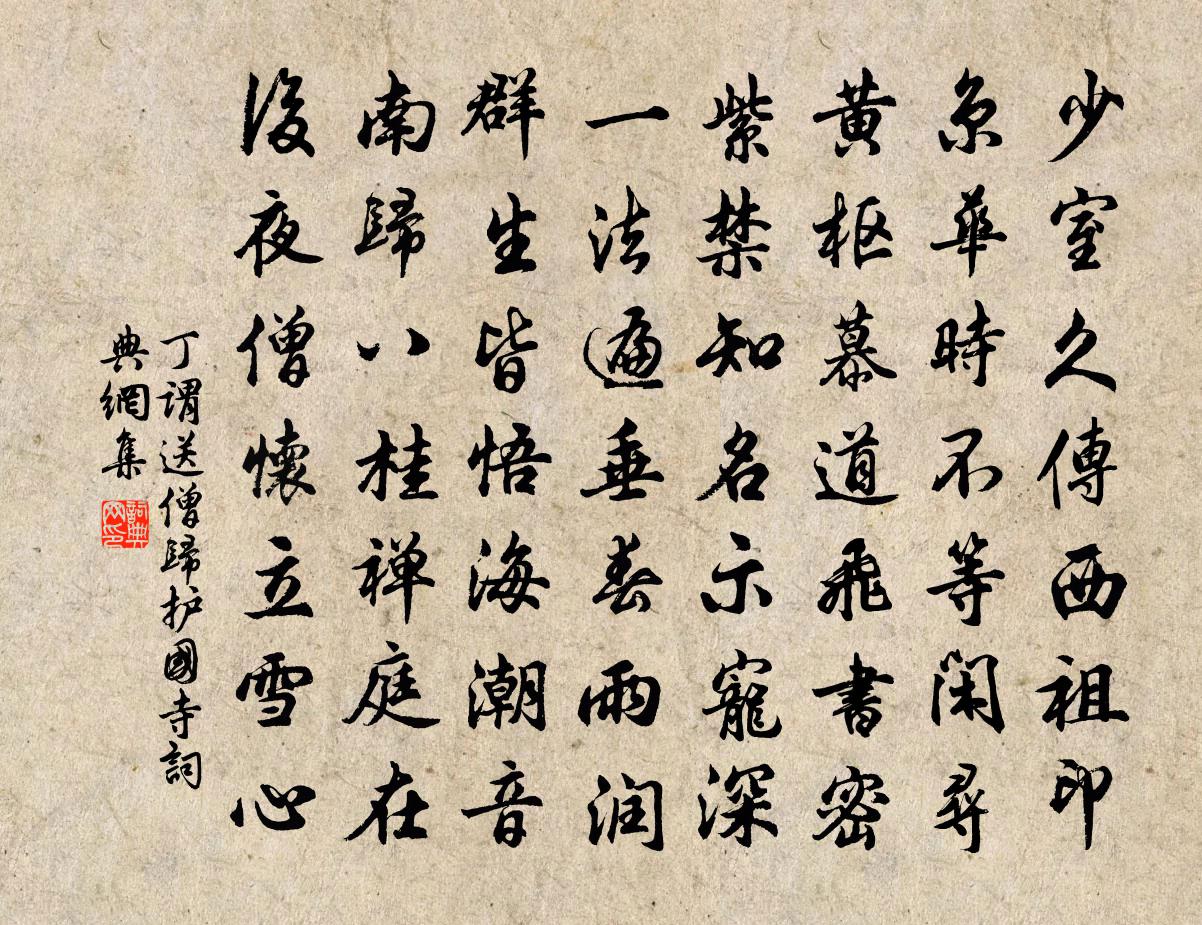 少室久傳西祖印
京華時不等閑尋
黄枢慕道飛書密
紫禁知名示寵深
一法遍垂春雨润
群生皆悟海潮音
南歸八桂禅庭在
後夜僧懷立雪心
丁謂送僧歸护國寺詞
典網集
詞典
网印